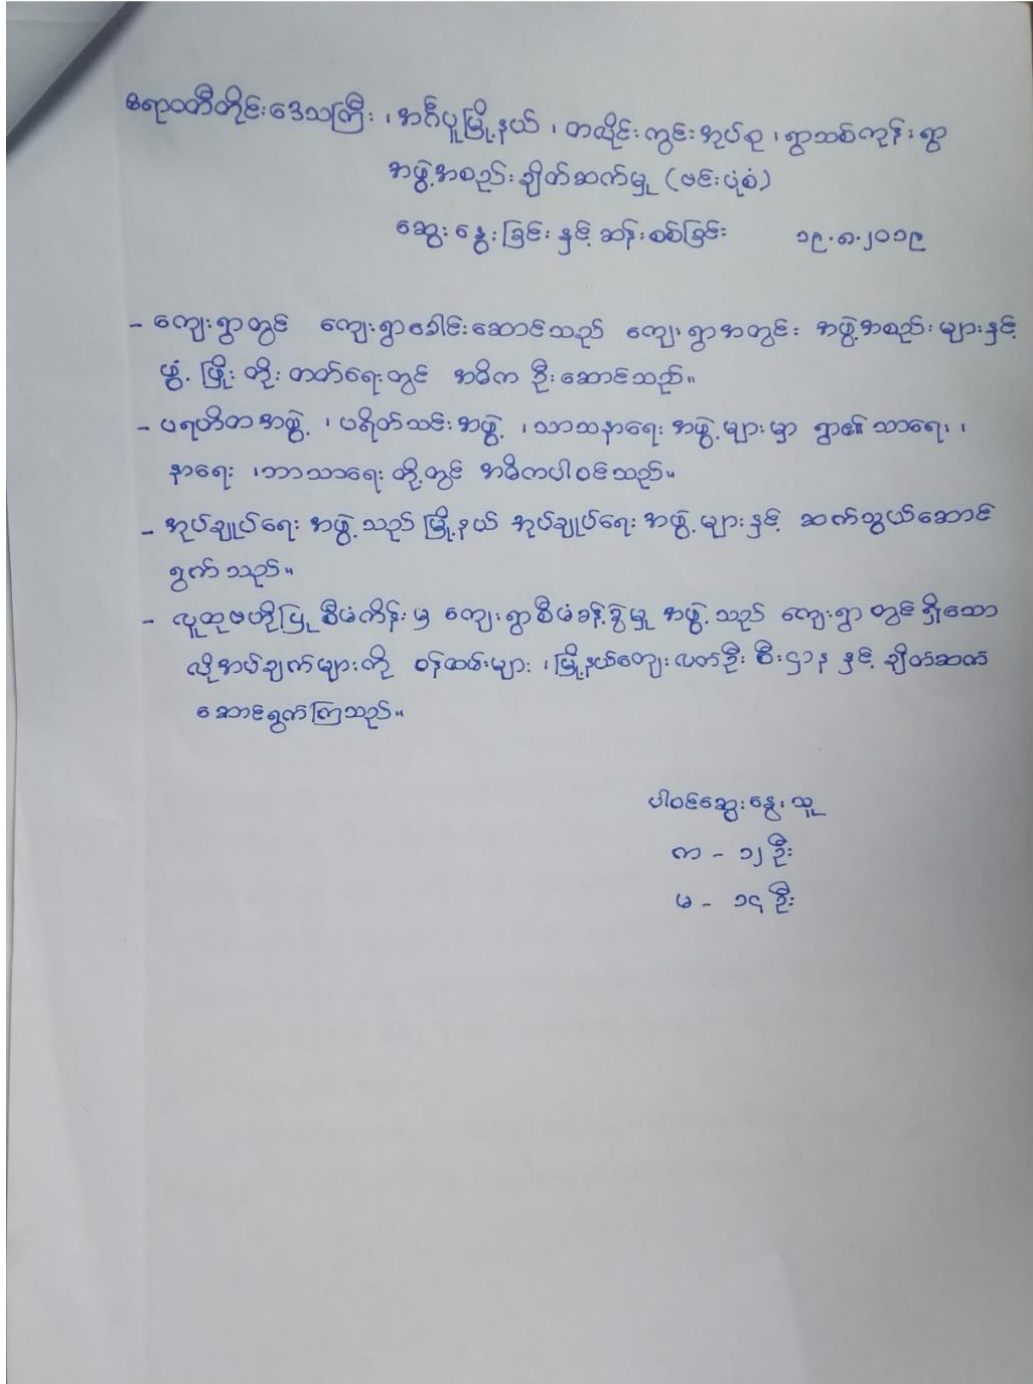 ဧရာဝတီတိုင်းဒေသကြီး ၊ အင်္ဂပူမြို့နယ် ၊ တလိုင်းကွင်းအုပ်စု ၊ ရွာသစ်ကုန်းရွာ
အဖွဲ့အစည်းချိတ်ဆက်မှု (ဗင်းပုံစံ)
ဆွေးနွေးခြင်း နှင့် ဆန်းစစ်ခြင်း ၁၉.၈.၂၀၁၉
- ကျေးရွာတွင် ကျေးရွာခေါင်းဆောင်သည် ကျေးရွာအတွင်း အဖွဲ့အစည်းများနှင့်
ဖွံ့ဖြိုးတိုးတက်ရေးတွင် အဓိကဦးဆောင်သည်။
- ပရဟိတအဖွဲ့ ၊ ပရိတ်သင်းအဖွဲ့ ၊ သာသနာရေးအဖွဲ့များမှာ ရွာ၏ သာရေး ၊
နာရေး ၊ ဘာသာရေးတို့တွင် အဓိကပါဝင်သည်။
- အုပ်ချုပ်ရေးအဖွဲ့သည် မြို့နယ်အုပ်ချုပ်ရေးအဖွဲ့များနှင့် ဆက်သွယ်ဆောင်
ရွက်သည်။
- လူထုဗဟိုပြုစီမံကိန်းမှ ကျေးရွာစီမံခန့်ခွဲမှုအဖွဲ့သည် ကျေးရွာတွင်ရှိသော
လိုအပ်ချက်များကို ဝန်ထမ်းများ ၊ မြို့နယ်ကျေးလက်ဦးစီးဌာနနှင့် ချိတ်ဆက်
ဆောင်ရွက်ကြသည်။
ပါဝင်ဆွေးနွေးသူ
က - ၁၂ ဦး
မ - ၁၄ ဦး